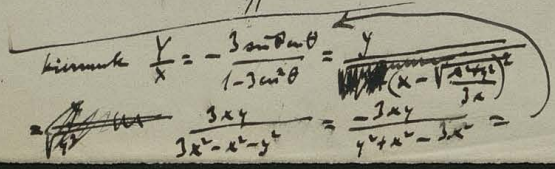 hiermit Y/X = - 3 sinθ cosθ / 1-3cos²θ = y / (x - √(x²+y²)/3x)²
= 3xy / 3x²-x²-y² = -3xy / y²+x²-3x² =